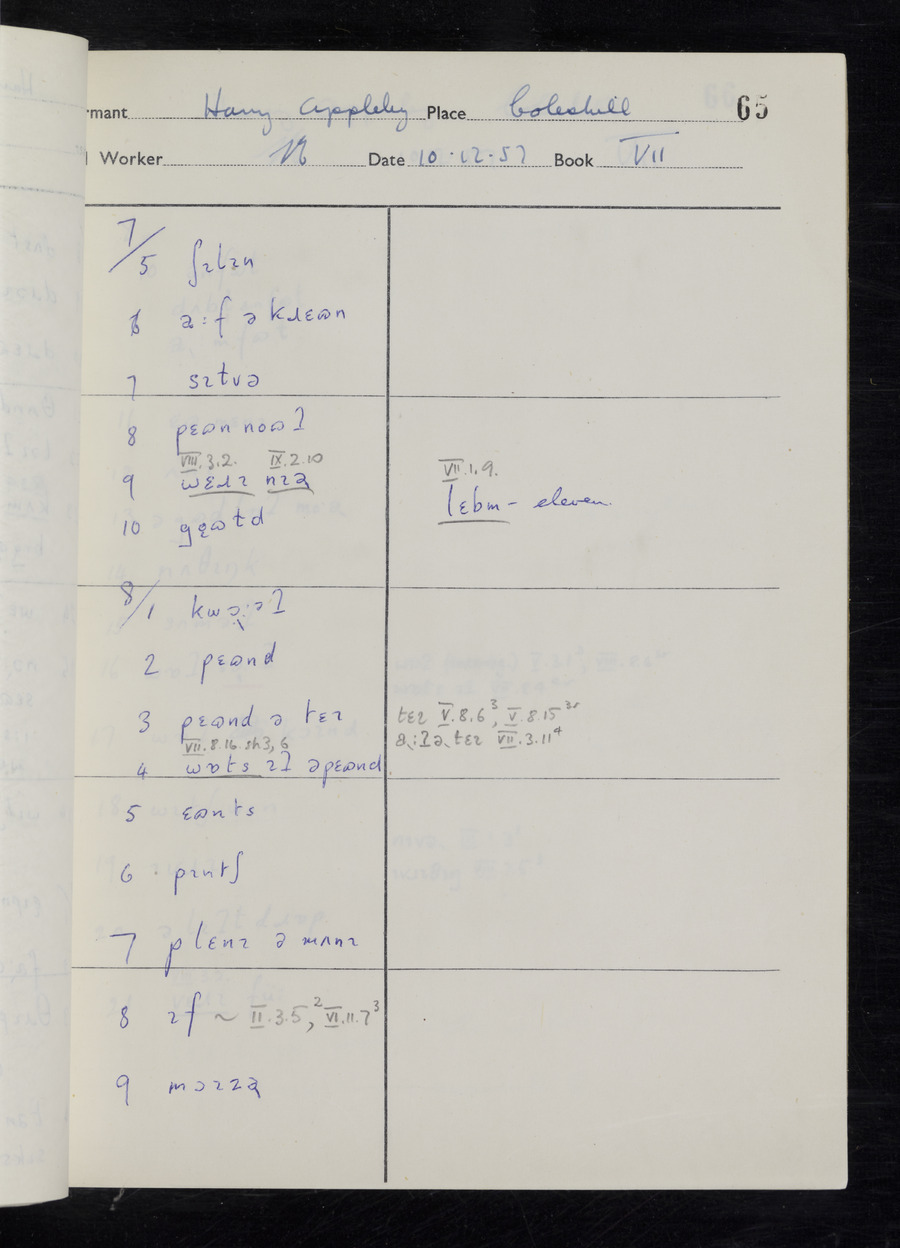 rmant Harry Appleby Place Coleshill 65
Worker Date 10.12.57 Book VII
7/5 ʃɪlɪn
6 ə:f ə kɹɛɷn
7 sɪtvə
8 pɛɷn noɷɫ
VIII.3.2. IX.2.10
9 wɛɹɪ nɪə
VII.1.9.
lɛbm - eleven
10
8/1
2 pɛɷnd
3 pɛɷnd ə tɛɪ
tɛɪ V.8.6³, V.8.15
VII.3.11⁴
VII.8.16. sh3, 6
4 wɒts ɪɫ əpɛɷnd
5 ɛɷnts
6 pɪntʃ
7 plɛnɪ ə mʌnɪ
8 ɪf ~ II.3.5,² VI.11.7³
9